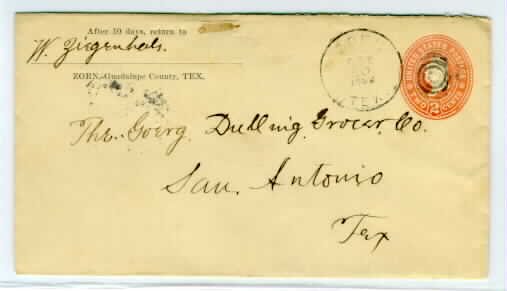 After 10 days, return to
W. Ziegenhals.
ZORN, Guadalupe County, TEX.
ZORN
TEX.
UNITED STATES POSTAGE
TWO 2 CENTS
The Goerg. Duelling Grocer Co.
San. Antonio
Tex